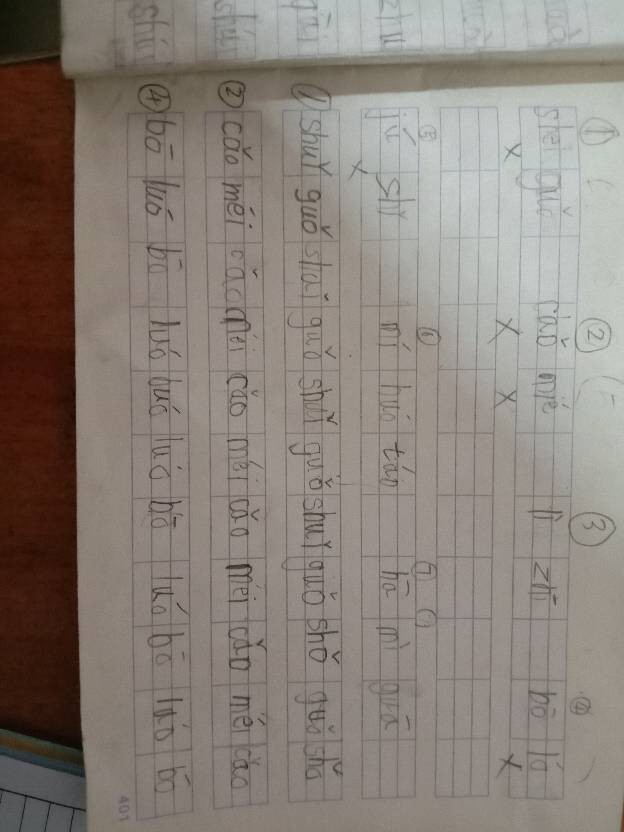 ① shěi guǒ ② cǎo mié ③ lí zhī ④ bō ló
⑤ jú zi ⑥ mí hóu táo ⑦ hā mì guā
① shuǐ guǒ shuǐ guǒ shuǐ guǒ shuǐ guǒ shǒ guǒ shǒ
② cǎo méi cǎo méi cǎo méi cǎo méi cǎo méi cǎo
④ bō luó bō luó luó luó bō luó bō luó bō
401